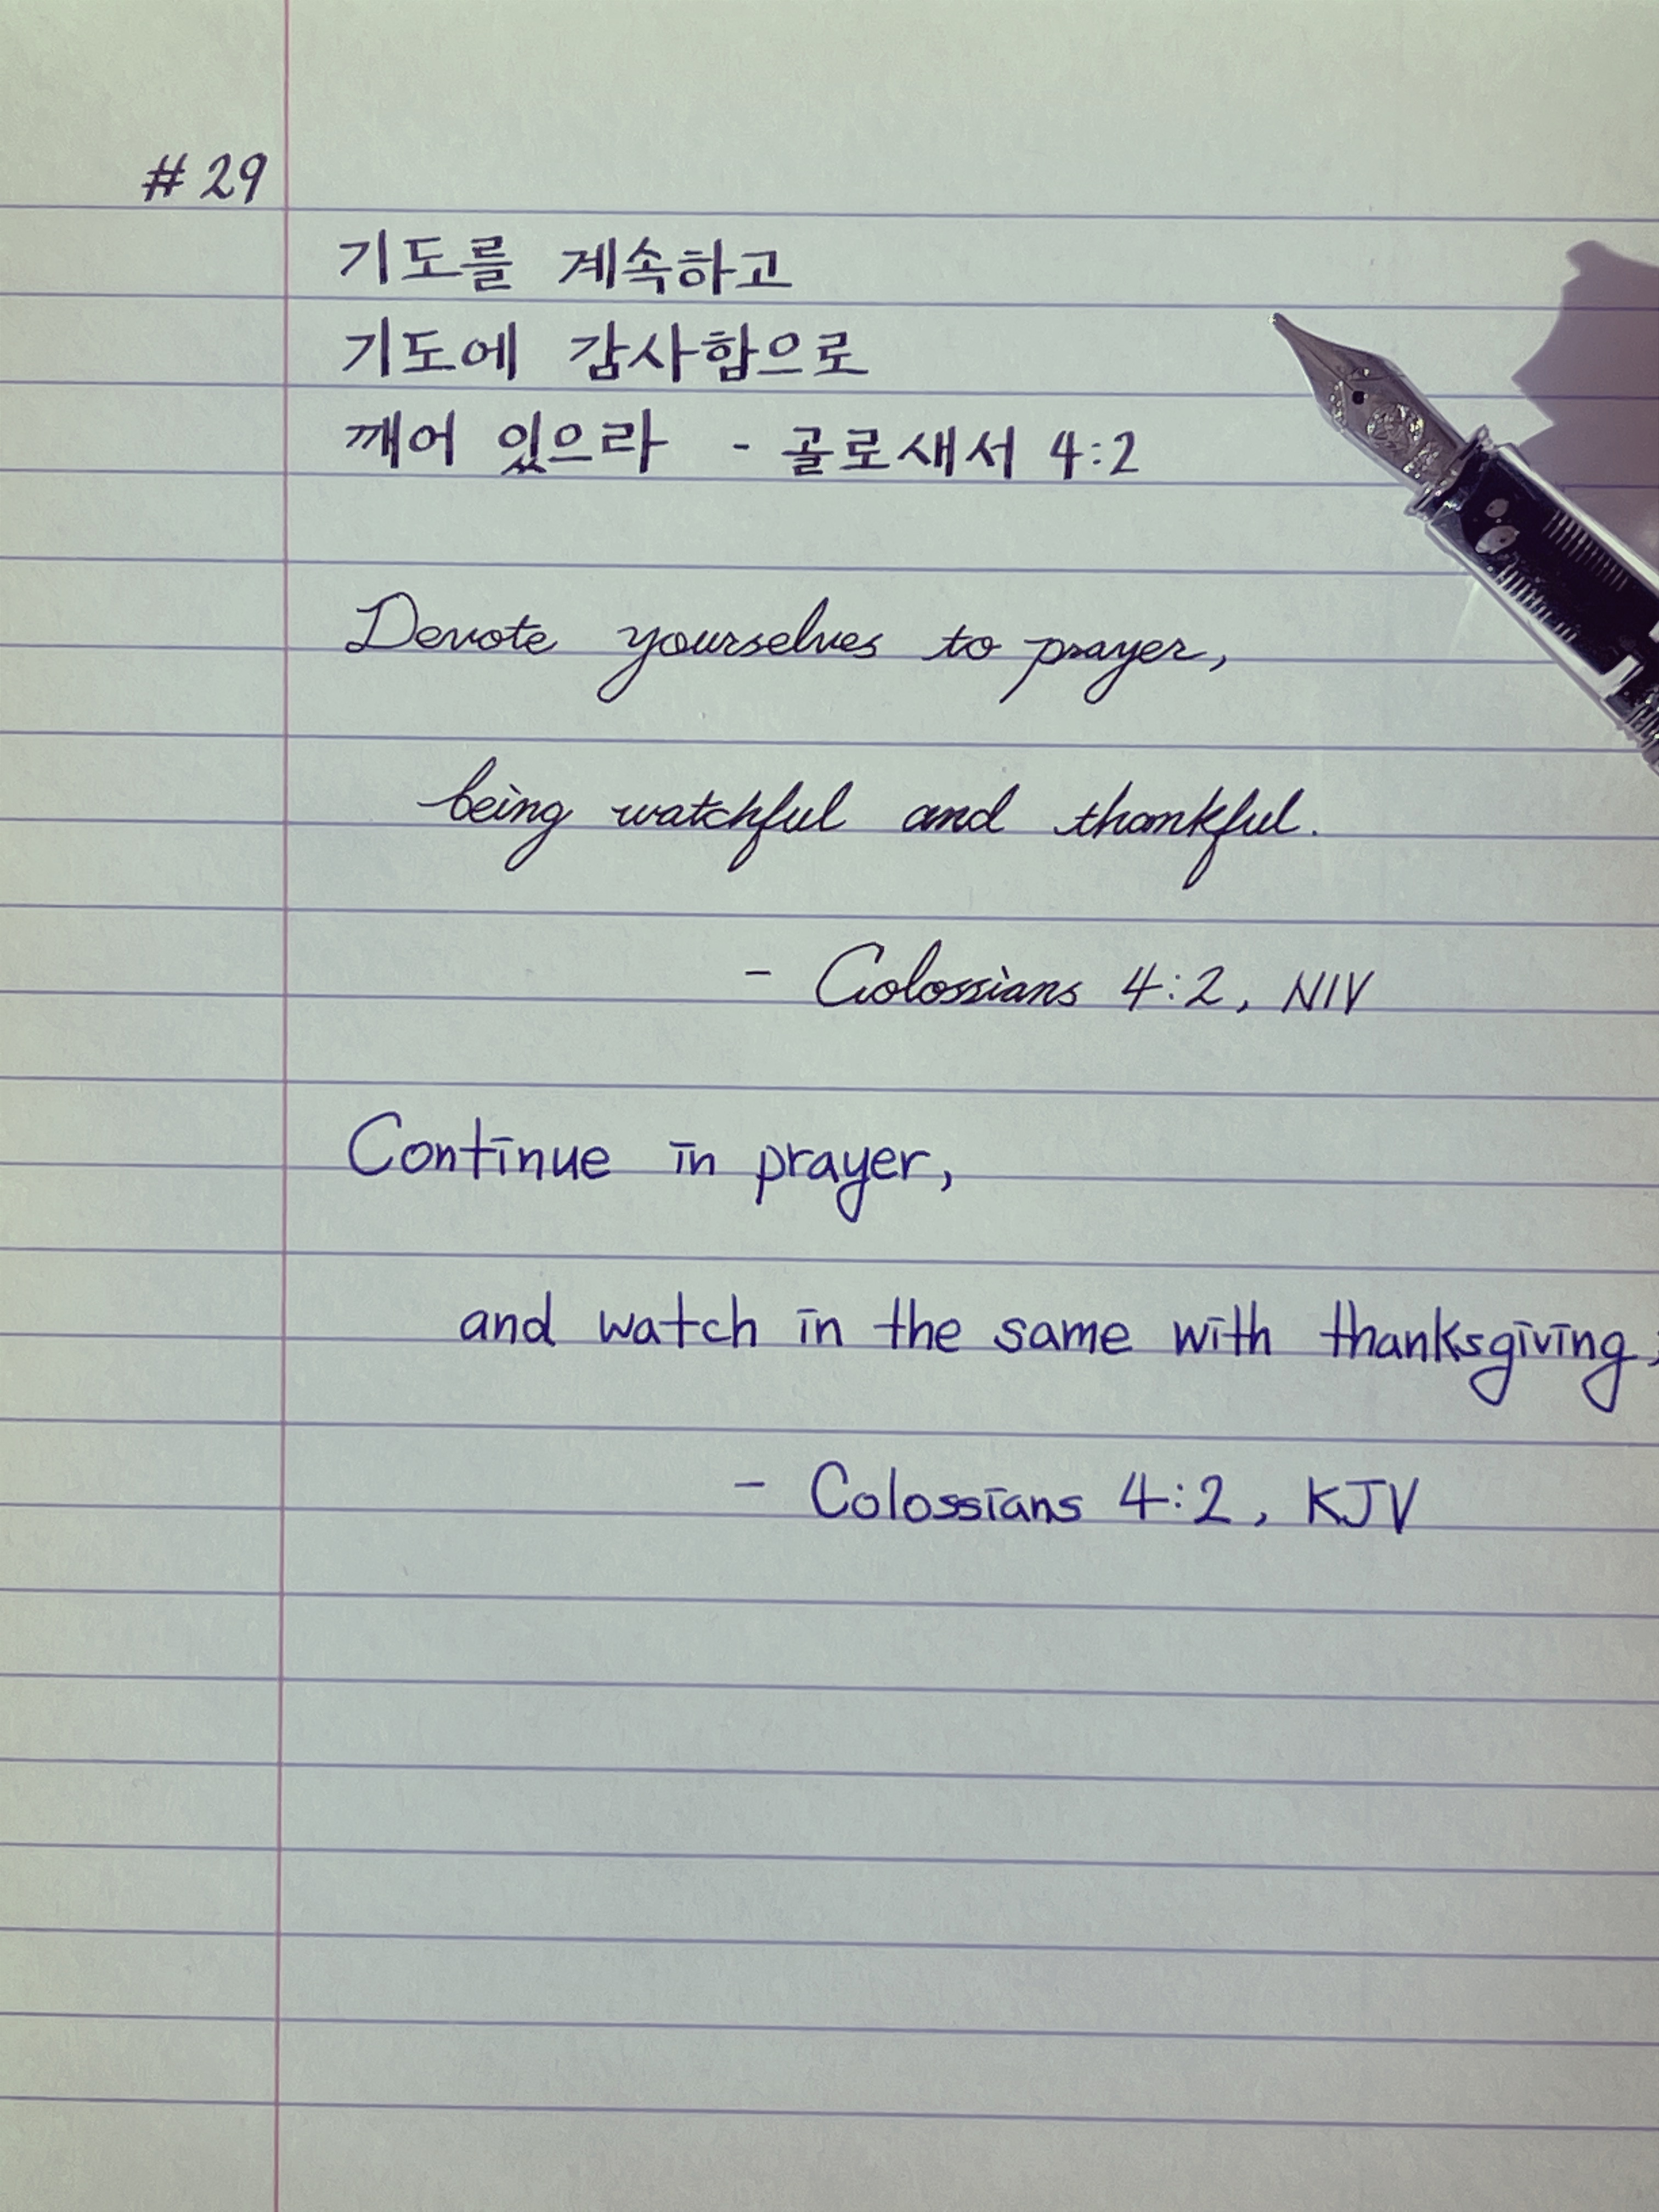 #29
기도를 계속하고
기도에 감사함으로
깨어 있으라 - 골로새서 4:2
Devote yourselves to prayer,
being watchful and thankful.
- Colossians 4:2, NIV
Continue in prayer,
and watch in the same with thanksgiving;
- Colossians 4:2, KJV